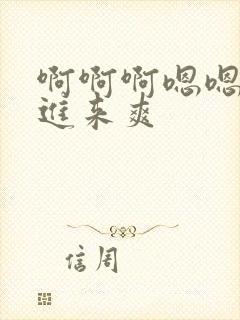 啊啊啊嗯嗯
進来爽
信周